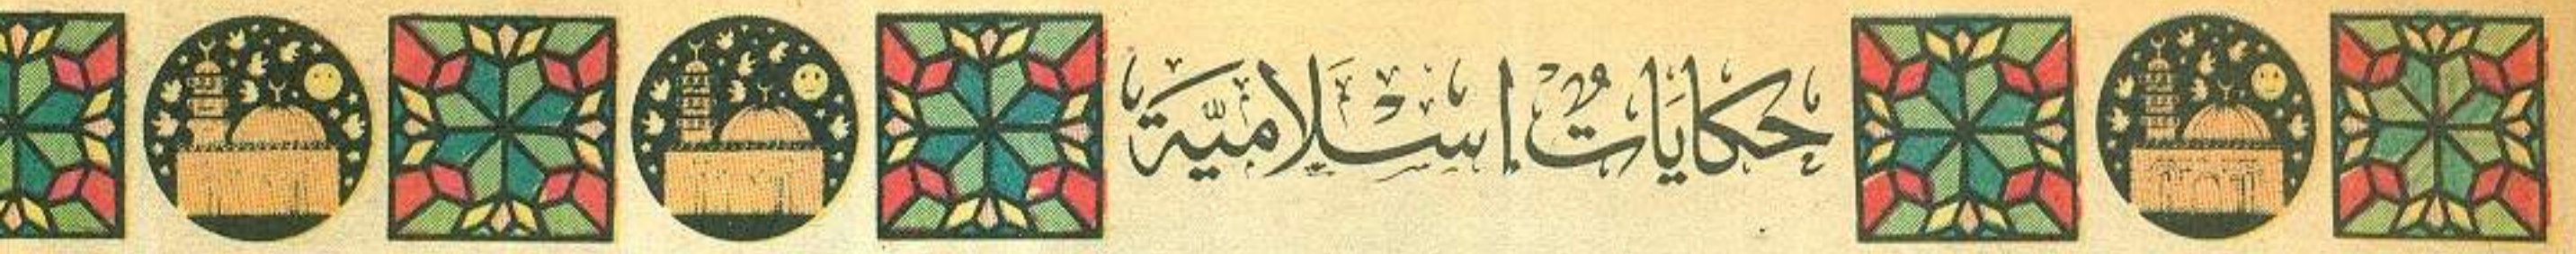 حكايَاتٌ إسْلَاميَّة